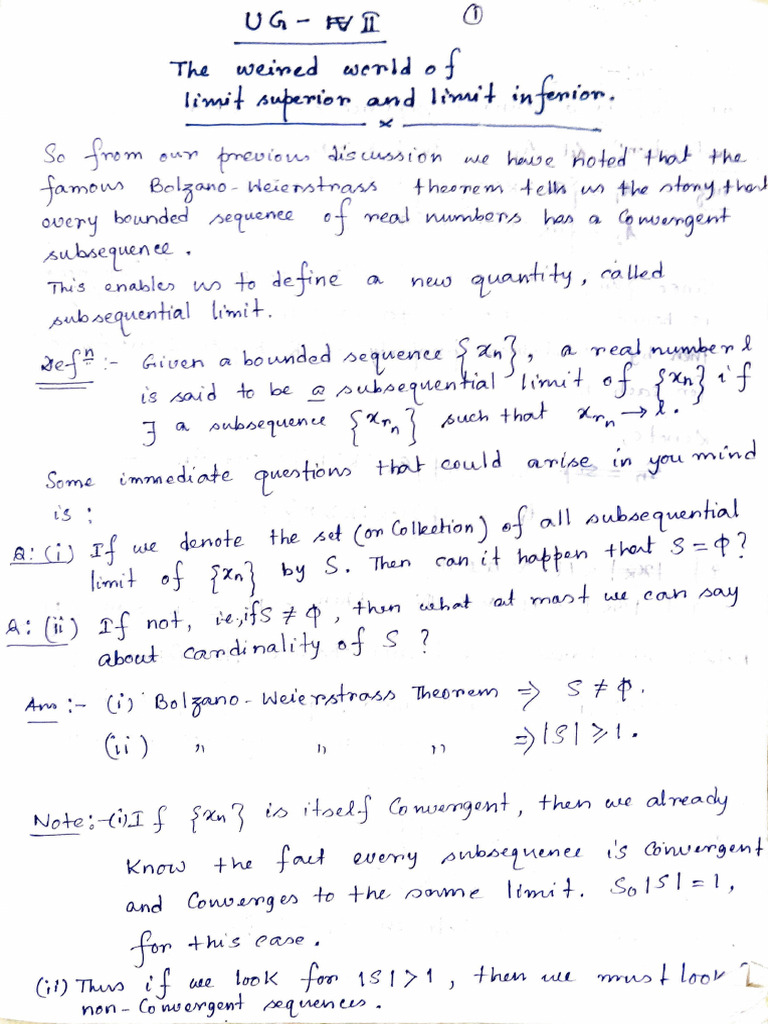 UG - II
①
The weired world of
limit superior and limit inferior.
So from our previous discussion we have noted that the
famous Bolzano-Weierstrass theorem tells us the story that
every bounded sequence of real numbers has a convergent
subsequence.
This enables us to define a new quantity, called
subsequential limit.
Defⁿ :- Given a bounded sequence {xn}, a real number l
is said to be a subsequential limit of {xn} if
∃ a subsequence {x_{r_n}} such that x_{r_n} → l.
Some immediate questions that could arise in you mind
is :
Q: (i) If we denote the set (or Collection) of all subsequential
limit of {xn} by S. Then can it happen that S = Φ?
Q: (ii) If not, i.e, if S ≠ Φ, then what at most we can say
about cardinality of S ?
Ans :- (i) Bolzano-Weierstrass Theorem ⇒ S ≠ Φ.
(ii) " " " ⇒ |S| ≥ 1.
Note:-(i) If {xn} is itself Convergent, then we already
Know the fact every subsequence is convergent
and Converges to the same limit. So |S| = 1,
for this case.
(ii) Thus if we look for |S| > 1, then we must look
non-Convergent sequences.